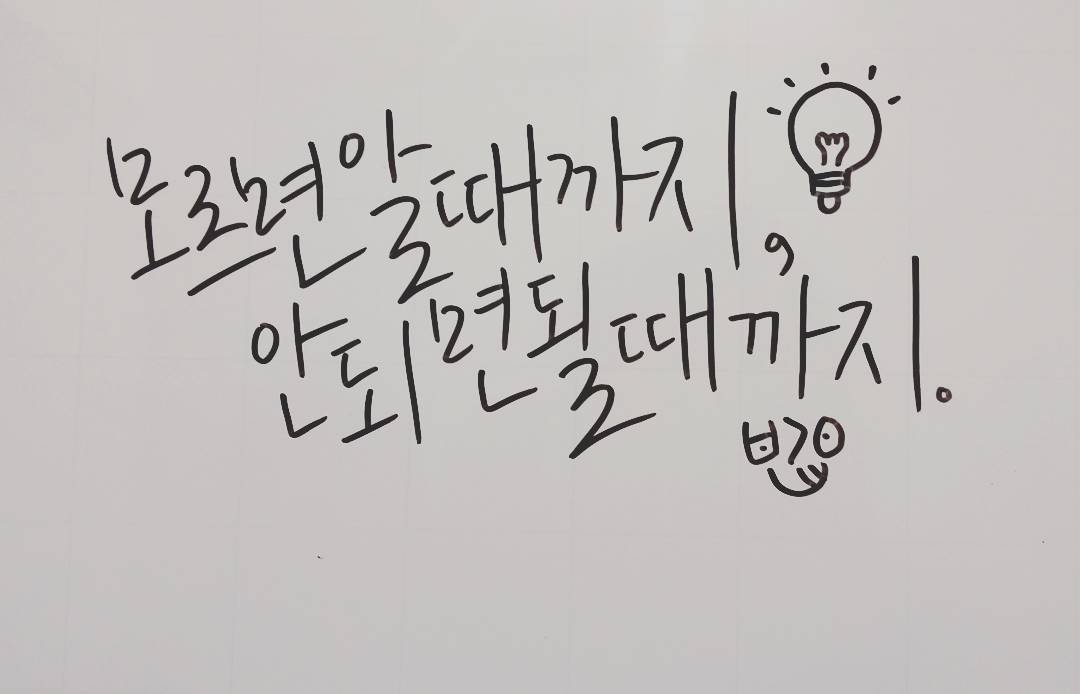 모르면 알때까지,
안되면 될때까지.